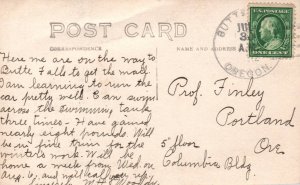 POST CARD
CORRESPONDENCE
Here we are on the way to
Butte Falls to get the mail.
I am learning to run the
car pretty well. I can swim
across the swimming tank
three times - Have gained
nearly eight pounds. Will
be in fine trim for the
winters work. Will be
home a week from Wed. or
Aug. 6, and will call you up
BUTTE
OREGON
Prof. Finley
Portland
5 floor Ore
Columbia Bldg